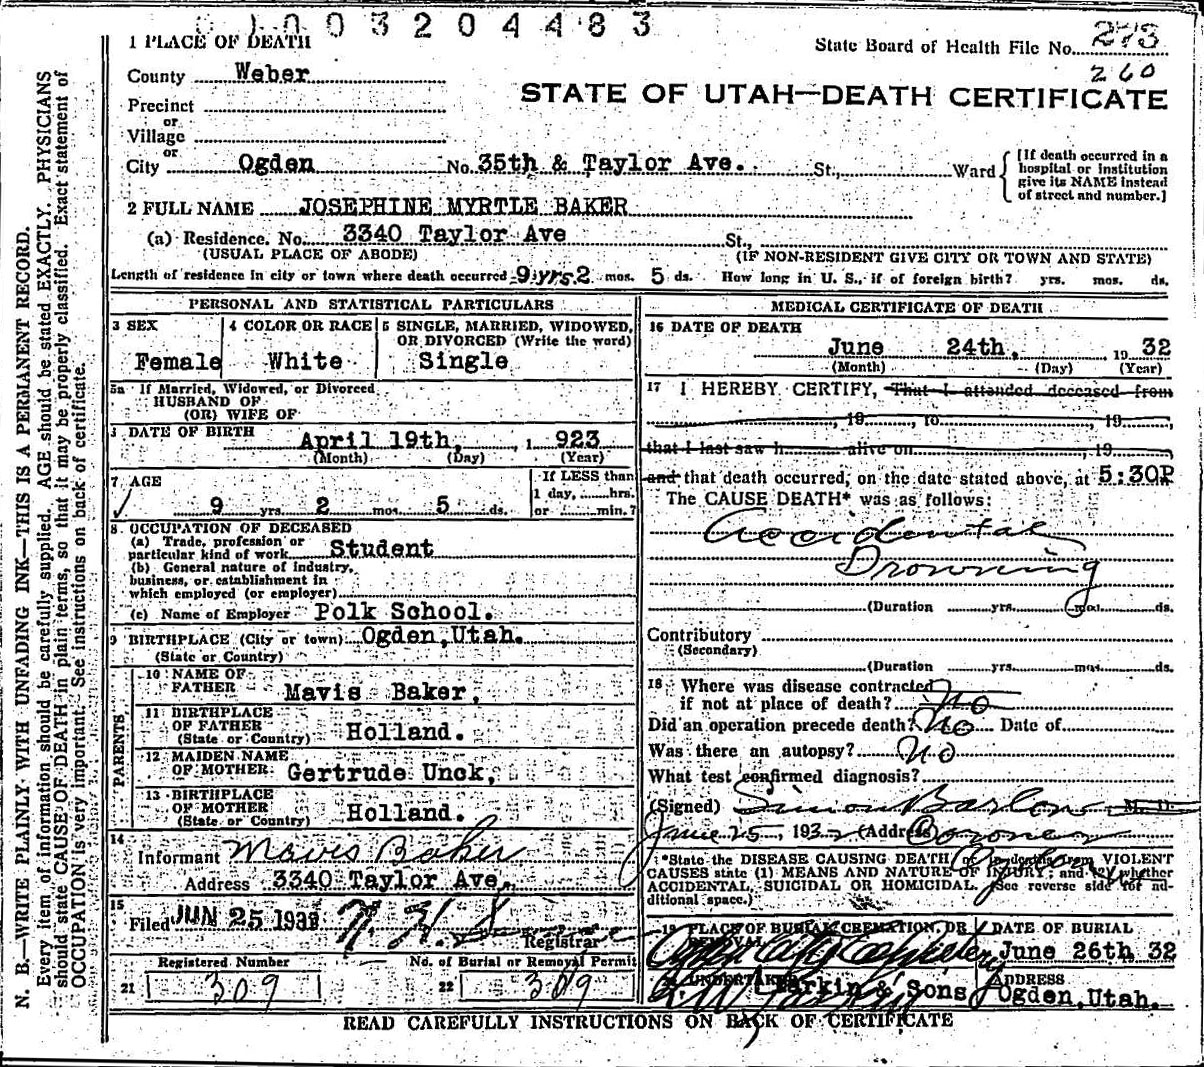 003204483
1 PLACE OF DEATH
State Board of Health File No. 273
260
County Weber
STATE OF UTAH—DEATH CERTIFICATE
Precinct
or
Village
or
City Ogden No. 35th & Taylor Ave. St., Ward
[If death occurred in a
hospital or institution
give its NAME instead
of street and number.]
2 FULL NAME JOSEPHINE MYRTLE BAKER
(a) Residence. No. 3340 Taylor Ave St.,
(USUAL PLACE OF ABODE) (IF NON-RESIDENT GIVE CITY OR TOWN AND STATE)
Length of residence in city or town where death occurred 9 yrs. 2 mos. 5 ds. How long in U. S., if of foreign birth? yrs. mos. ds.
PERSONAL AND STATISTICAL PARTICULARS
3 SEX
Female
4 COLOR OR RACE
White
5 SINGLE, MARRIED, WIDOWED,
OR DIVORCED (Write the word)
Single
5a If Married, Widowed, or Divorced
HUSBAND OF
(OR) WIFE OF
DATE OF BIRTH
April 19th, 1 923
(Month) (Day) (Year)
7 AGE
9 yrs. 2 mos. 5 ds.
If LESS than
1 day, hrs.
or min.?
8 OCCUPATION OF DECEASED
(a) Trade, profession or
particular kind of work Student
(b) General nature of industry,
business, or establishment in
which employed (or employer)
(c) Name of Employer Polk School.
9 BIRTHPLACE (City or town) Ogden,Utah.
(State or Country)
PARENTS
10 NAME OF
FATHER Mavis Baker,
11 BIRTHPLACE
OF FATHER
(State or Country) Holland.
12 MAIDEN NAME
OF MOTHER Gertrude Unck,
13 BIRTHPLACE
OF MOTHER
(State or Country) Holland.
14
Informant Mavis Baker
Address 3340 Taylor Ave,
15
Filed JUN 25 1932
Registrar
Registered Number
21 309
No. of Burial or Removal Permit
22 309
MEDICAL CERTIFICATE OF DEATH
16 DATE OF DEATH
June 24th, 19 32
(Month) (Day) (Year)
17 I HEREBY CERTIFY, That I attended deceased from
, 19 , to , 19 ,
that I last saw h alive on , 19 ,
and that death occurred, on the date stated above, at 5:30P
The CAUSE DEATH* was as follows:
Accidental
Drowning
(Duration yrs. mos. ds.
Contributory
(Secondary)
(Duration yrs. mos. ds.
18 Where was disease contracted
if not at place of death? No
Did an operation precede death? No Date of
Was there an autopsy? No
What test confirmed diagnosis?
(Signed) Simon Barlow M. D.
June 25, 1932 (Address) Coroner
*State the DISEASE CAUSING DEATH or in deaths from VIOLENT
CAUSES state (1) MEANS AND NATURE OF INJURY; and whether
ACCIDENTAL, SUICIDAL OR HOMICIDAL. (See reverse side for ad-
ditional space.)
19 PLACE OF BURIAL, CREMATION, OR
REMOVAL
Ogden City Cemetery
DATE OF BURIAL
June 26th 32
UNDERTAKER
Larkin & Sons
ADDRESS
Ogden,Utah.
READ CAREFULLY INSTRUCTIONS ON BACK OF CERTIFICATE
N. B.—WRITE PLAINLY WITH UNFADING INK—THIS IS A PERMANENT RECORD.
Every item of information should be carefully supplied. AGE should be stated EXACTLY. PHYSICIANS
should state CAUSE OF DEATH in plain terms, so that it may be properly classified. Exact statement of
OCCUPATION is very important. See instructions on back of certificate.